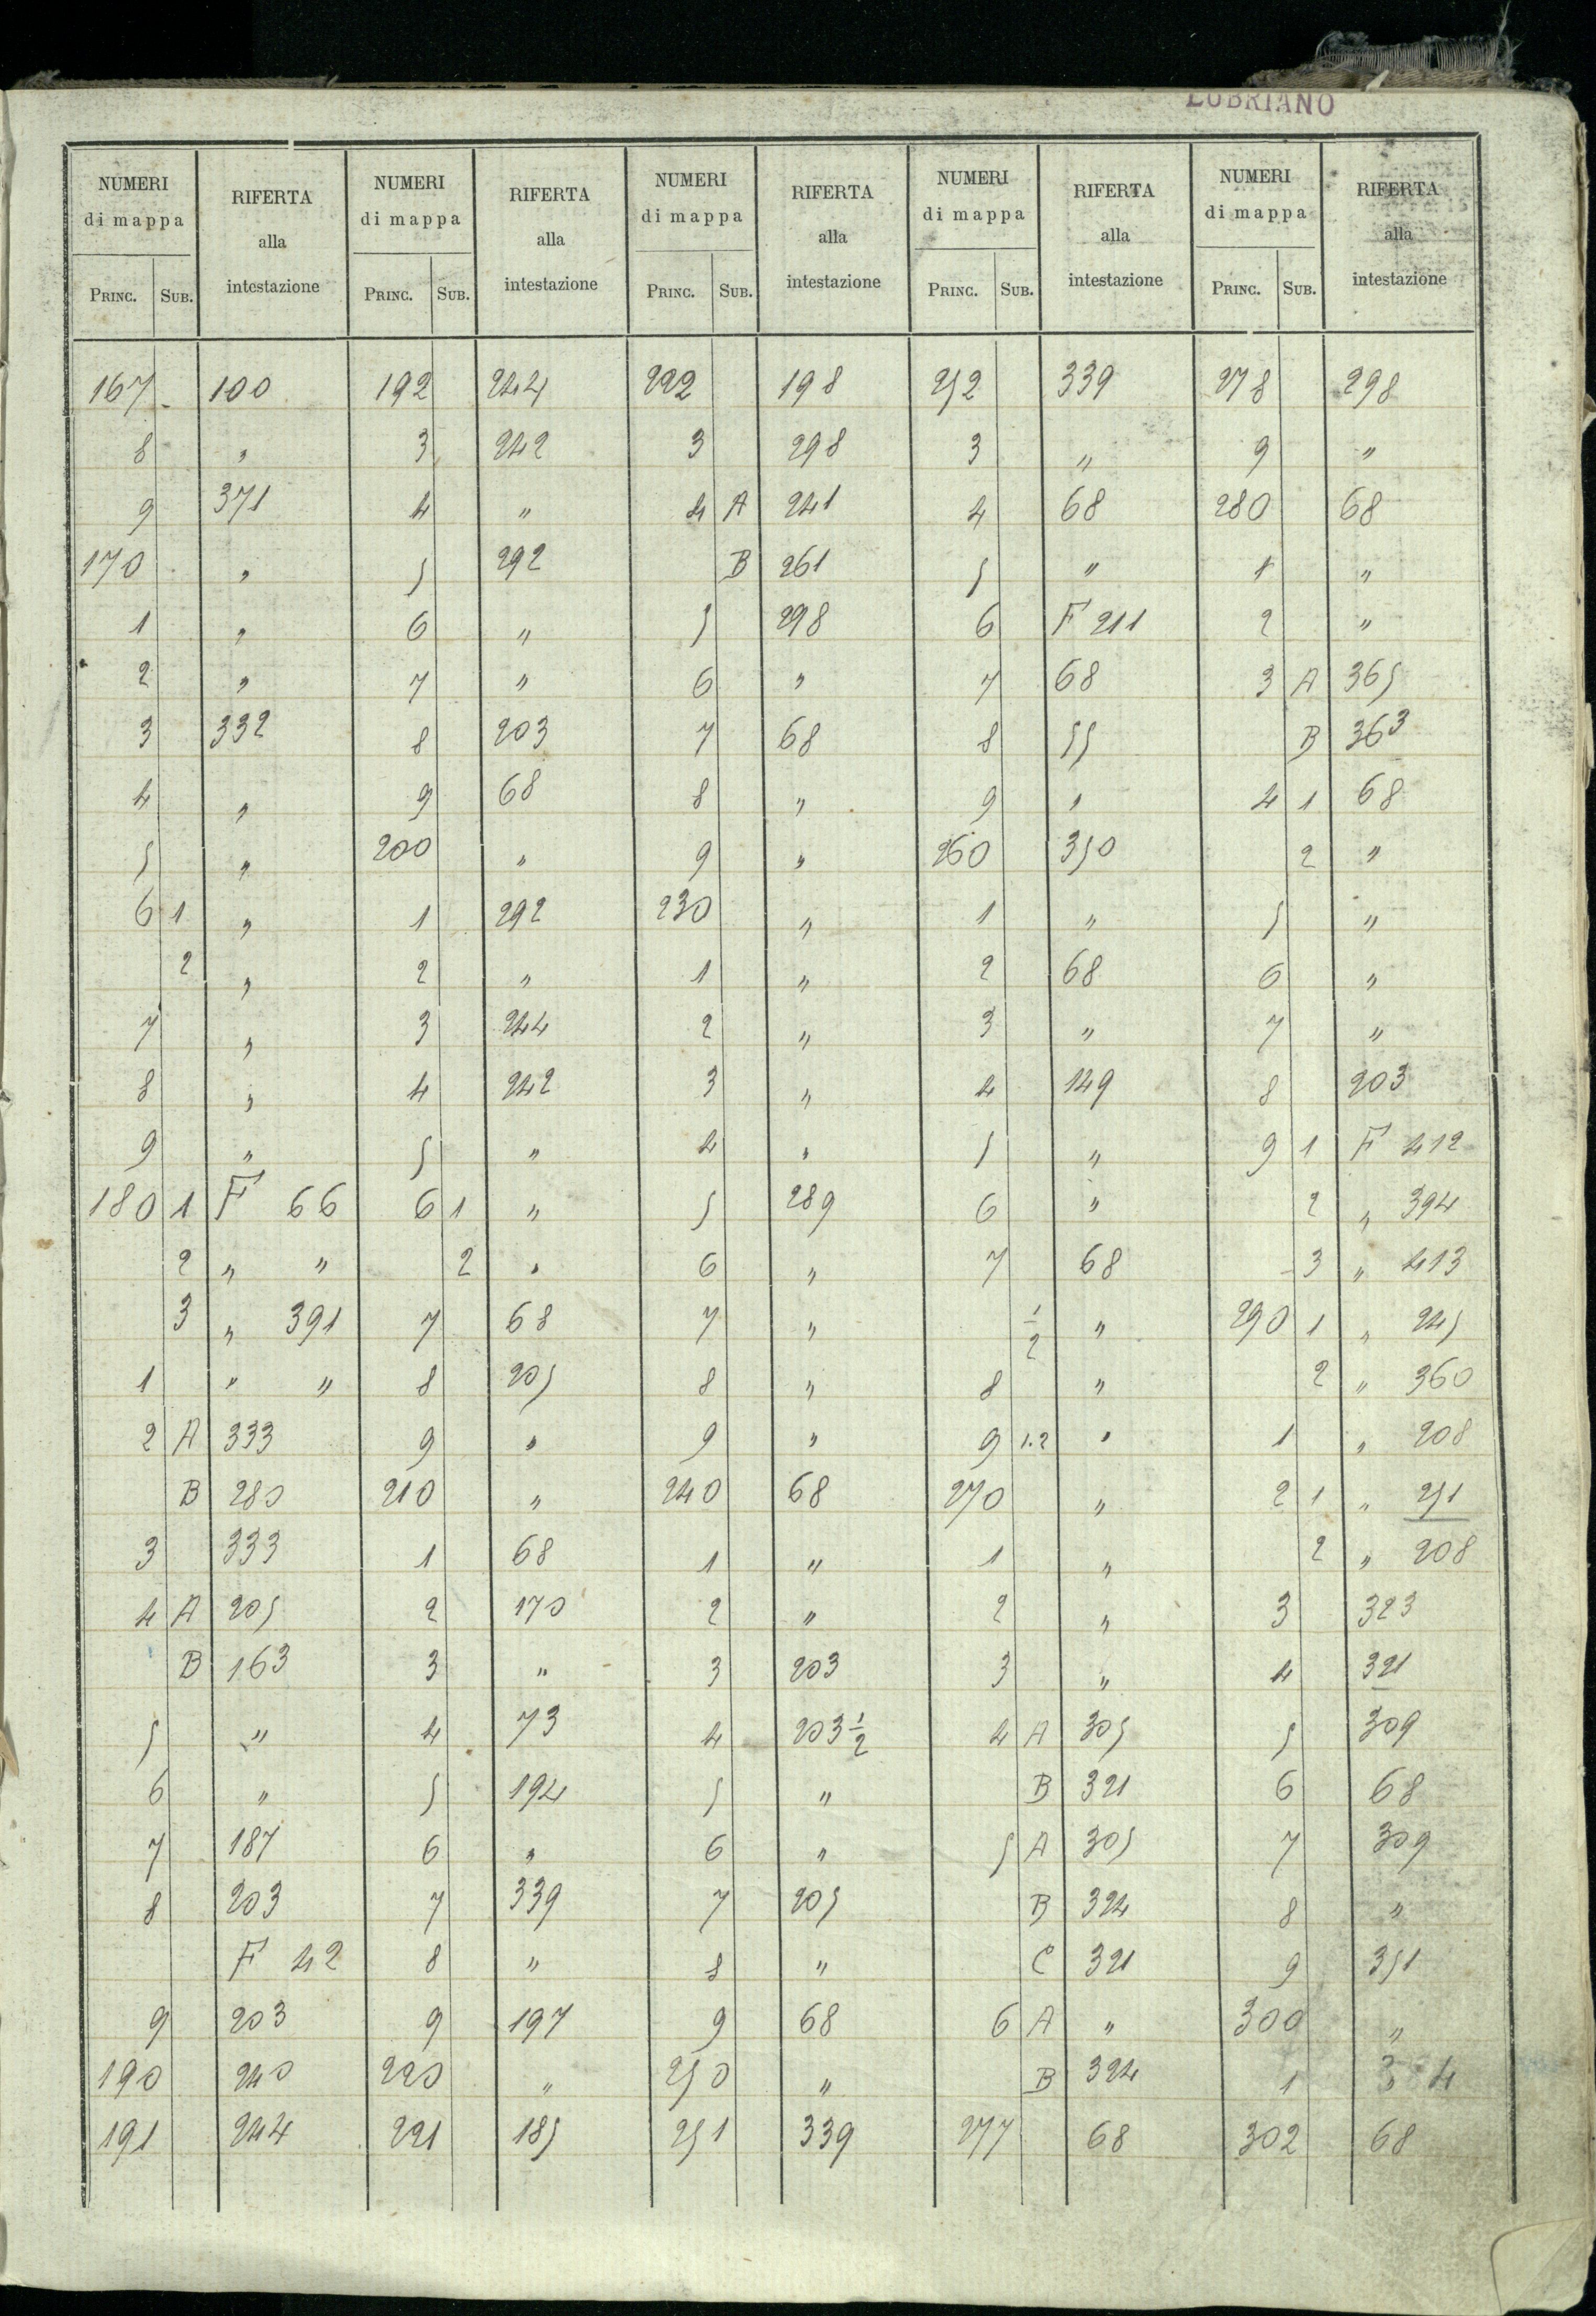 LUBRIANO
NUMERI di mappa RIFERTA alla intestazione NUMERI di mappa RIFERTA alla intestazione NUMERI di mappa RIFERTA alla intestazione NUMERI di mappa RIFERTA alla intestazione NUMERI di mappa RIFERTA alla intestazione
PRINC. SUB. PRINC. SUB. PRINC. SUB. PRINC. SUB. PRINC. SUB.
167 100 192 244 222 198 252 339 278 298
8 " 3 242 3 298 3 " 9 "
9 371 4 " 4 A 241 4 68 280 68
170 " 5 292 B 261 5 " 1 "
1 " 6 " 5 298 6 F 211 2 "
2 " 7 " 6 " 7 68 3 A 365
3 332 8 203 7 68 8 55 B 363
4 " 9 68 8 " 9 " 4 1 68
5 " 200 " 9 " 260 350 2 "
6 1 " 1 292 230 " 1 " 5 "
2 " 2 " 1 " 2 68 6 "
7 " 3 244 2 " 3 " 7 "
8 " 4 242 3 " 4 149 8 203
9 " 5 " 4 " 5 " 9 1 F 412
180 1 F 66 6 1 " 5 289 6 " 2 " 394
2 " " 2 " 6 " 7 68 3 " 413
3 " 391 7 68 7 " 1/2 " 290 1 " 245
1 " " 8 205 8 " 8 " 2 " 360
2 A 333 9 " 9 " 9 1.2 " 1 " 208
B 280 210 " 240 68 270 " 2 1 " 251
3 333 1 68 1 " 1 " 2 " 208
4 A 205 2 170 2 " 2 " 3 323
B 163 3 " 3 203 3 " 4 321
5 " 4 73 4 203 1/2 4 A 305 5 309
6 " 5 194 5 " B 321 6 68
7 187 6 " 6 " 5 A 305 7 309
8 203 7 339 7 205 B 324 8 "
F 42 8 " 8 " C 321 9 351
9 203 9 197 9 68 6 A " 300 "
190 240 220 " 250 " B 324 1
191 244 221 185 251 339 277 68 302 68